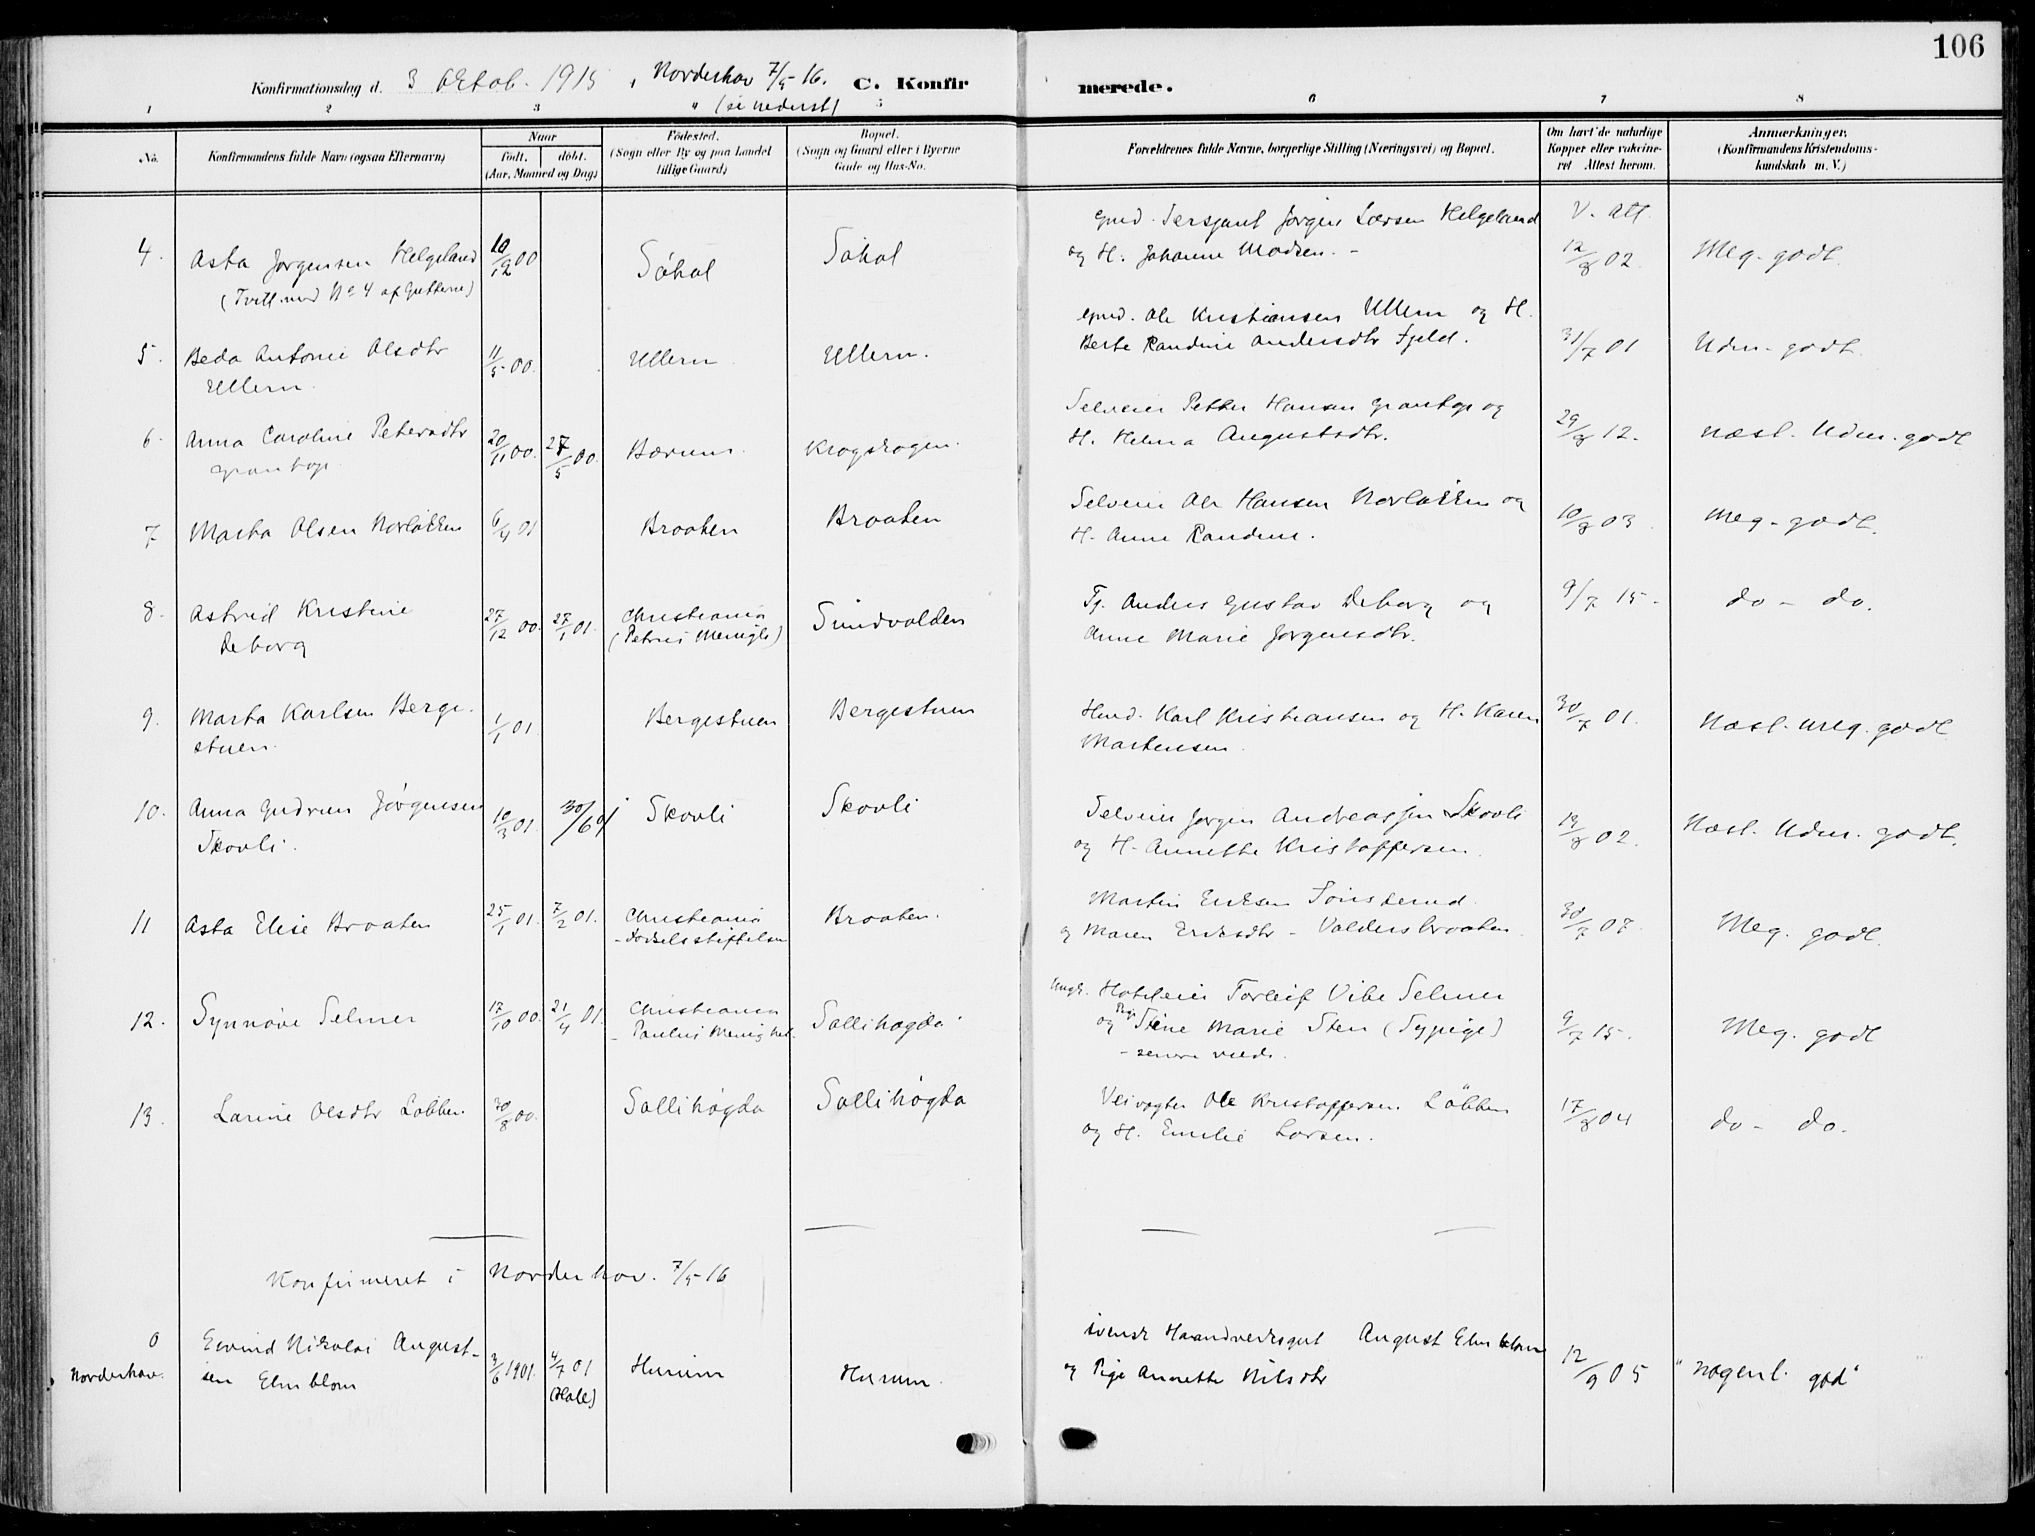 106
Konfirmationsdag d. 3 Oktob. 1915, Norderhov 7/5 16. C. Konfirmerede.
" (se nederst)
1 2 3 5 6 7 8
No.
Konfirmandens fulde Navn (ogsaa Efternavn)
Naar
født. døbt.
(Aar, Maaned og Dag)
Fødested.
(Sogn eller By og paa Landet
tillige Gaard)
Bopæl.
(Sogn og Gaard eller i Byerne
Gade og Hus-No.
Forældrenes fulde Navne, borgerlige Stilling (Næringsvei) og Bopæl.
Om havt de naturlige
Kopper eller vakcine-
ret Attest herom.
Anmærkninger.
(Konfirmandens Kristendoms-
kundskab m. V.)
4. Asta Jørgensen Helgeland 10/12 00 Søhol Søhol Gmd. Sersjant Jørgen Larsen Helgeland V. Att.
(Tvill. med No 4 af Gutterne) og H. Johanne Madsen. - 12/8 02. Meg. godt.
5. Beda Antonie Olsdtr 11/5 00. Ullern Ullern. Gmd. Ole Kristiansen Ullern og H.
Ullern. Berte Randine Andersdtr Fjeld. 31/7 01 Udm. godt.
6. Anna Caroline Petersdtr 20/11 00. 27/5 00. Bærum. Krogskogen. Selveier Petter Hansen Grantop og
Grantop. H. Helma Augustsdtr. 29/8 12. Næst. Udm. godt
7 Marta Olsen Norløkken 6/4 01 Braaten Braaten Selveier Ole Hansen Norløkken og
H. Anne Randine. 10/8 03. Meg. godt.
8. Astrid Kristine 27/12 00. 27/1 01. Christiania Sundvolden Tj. Anders Gustav Deborg og 9/7 15. do - do.
Deborg (Petrus Menigh) Anne Marie Jørgensdtr.
9. Marta Karlsen Berge- 1/1 01. Bergestuen Bergestuen Hmd. Karl Kristiansen og H. Karen 30/7 01. Næst. meg. godt
stuen. Martensen.
10. Anna Gudrun Jørgensen 10/3 01. 30/6 01 Skovli Skovli Selveier Jørgen Andreassen Skovli 19/8 02. Næst. Udm. godt.
Skovli. og H. Annette Kristoffersen.
11 Asta Elise Braaten 25/1 01. 7/2 01. Christiania Braaten. Martin Eriksen
- Fødselsstiftelsen og Maren Eriksdtr - Valdersbraaten. 30/7 07. Meg. godt.
12. Synnøve Selmer 17/10 00. 21/4 01 Christiania Sollihøgda Ungk. Hoteleier Torleif Vibe Selmer
- Paulus Menighed. og Pige Stine Marie Sten (Sypige) 9/7 15. Meg. godt
13. Larine Olsdtr Løbben. 30/8 00. Sollihøgda Sollihøgda Veivogter Ole Kristoffersen Løbben 17/8 04 do - do.
og H. Emilie Larsen.
Konfirmeret i Norderhov. 7/5 16
0 Eivind Nikolai August- svensk Haandverksgut August Elmblom
Norderhov. sen Elmblom 3/6 1901. 4/7 01 Hurum Hurum. og Pige Annette Nilsdtr 12/9 05 "Nogenl. god"
(Hole)